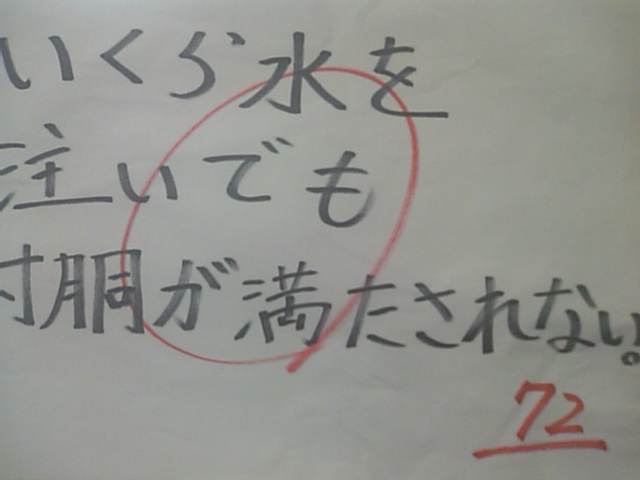 いくら水を
注いでも
寸胴が満たされない。
72